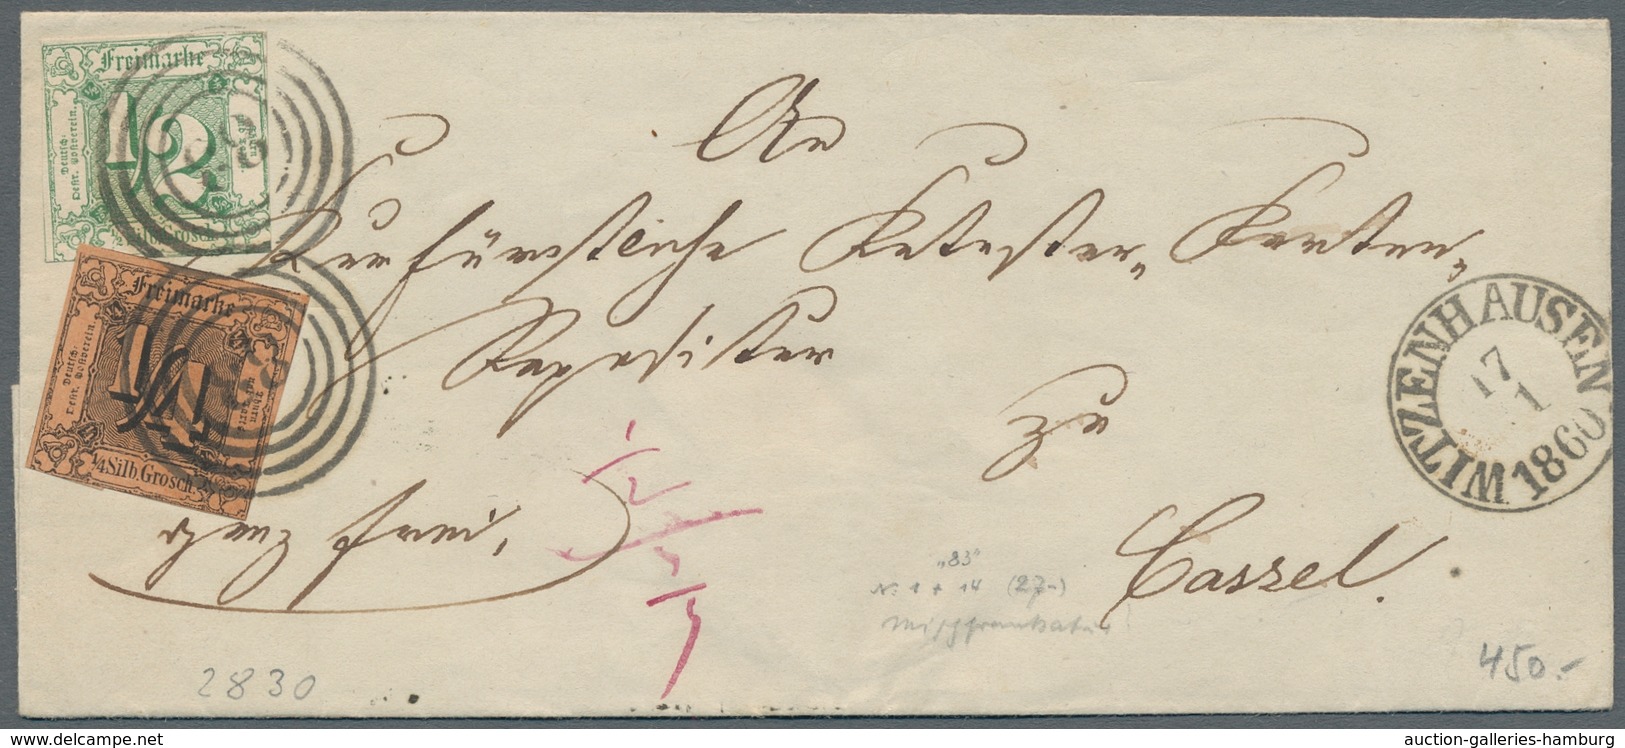 Freimarke
1/2
Deutsch-
Oestr. Postverein.
1/2 Silb. Grosch.
Freimarke
1/4
Deutsch-
Oestr. Postverein.
1/4 Silb. Grosch.
83
An
Kurfürstliche Kataster-Karten-
Repositur
zu
Cassel.
ganz frei,
WITZENHAUSEN
17
1
1860
„83“
Nr. 1 + 14 (27.-)
Mischfrankatur
2830
450.-
auction-galleries-hamburg